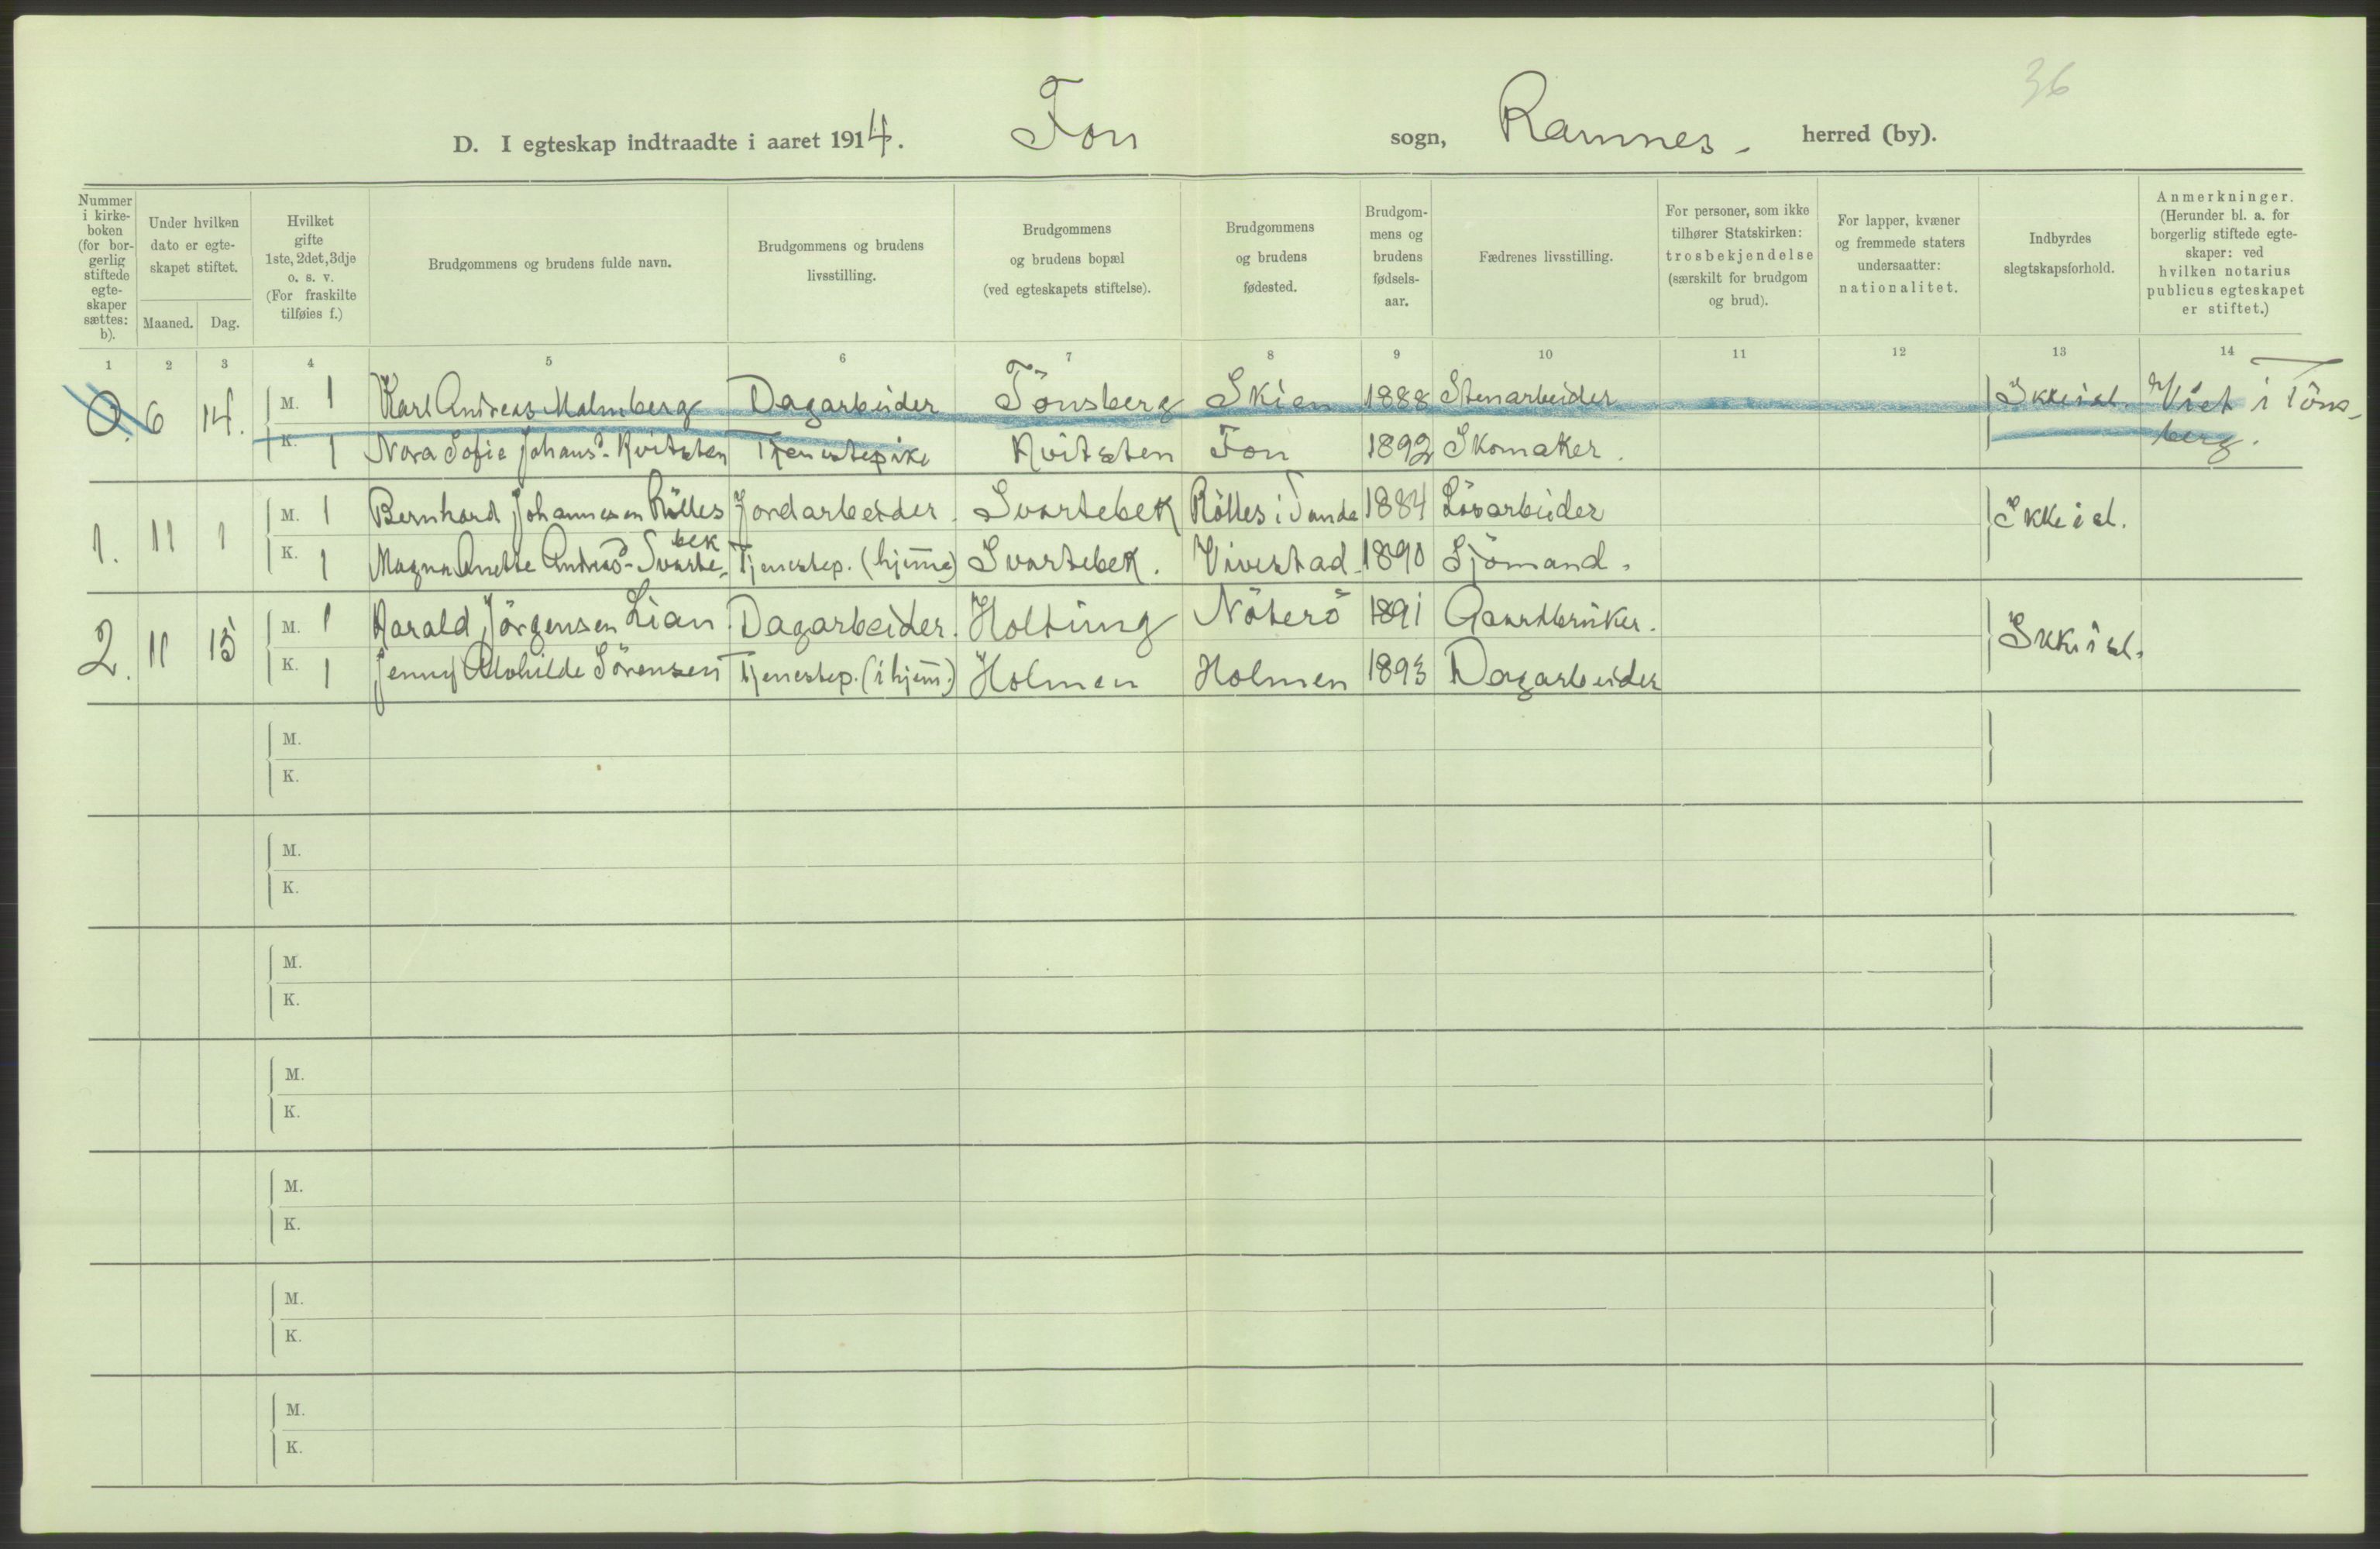 36
D. I egteskap indtraadte i aaret 1914. Fon sogn, Ramnes. herred (by).
Nummer i kirkeboken (for borgerlig stiftede egteskaper sættes: b).
Under hvilken dato er egteskapet stiftet.
Maaned. Dag.
Hvilket gifte 1ste, 2det, 3dje o. s. v. (For fraskilte tilføies f.)
Brudgommens og brudens fulde navn.
Brudgommens og brudens livsstilling.
Brudgommens og brudens bopæl (ved egteskapets stiftelse).
Brudgommens og brudens fødested.
Brudgommens og brudens fødselsaar.
Fædrenes livsstilling.
For personer, som ikke tilhører Statskirken: trosbekjendelse (særskilt for brudgom og brud).
For lapper, kvæner og fremmede staters undersaatter: nationalitet.
Indbyrdes slegtskapsforhold.
Anmerkninger. (Herunder bl. a. for borgerlig stiftede egteskaper: ved hvilken notarius publicus egteskapet er stiftet.)
1 2 3 4 5 6 7 8 9 10 11 12 13 14
0. 6 14. M. 1 Karl Andreas Malmberg Dagarbeider Tönsberg Skien 1888 Stenarbeider Ikke i sl. Viet i Töns-
K. 1 Nora Sofie Johansd. Kvitsten Tjenestepike Kvitsten Fon 1892 Skomaker. berg.
1. 11 1 M. 1 Bernhard Johannesen Rölles Jordarbeider. Svartebek Rölles i Vaade 1884 Lösarbeider Ikke i sl.
K. 1 Magna Anette Andreasd. Svartebek Tjenestep. (hjeme) Svartebek. Vivestad 1890 Sjömand.
2. 11 15 M. 1 Harald Jörgensen Lian. Dagarbeider. Holtung Nöterö 1891 Gaardbruker. Ikke i sl.
K. 1 Jenny Sörensen Tjenestep. (i hjem.) Holmen Holmen 1893 Dagarbeider
M.
K.
M.
K.
M.
K.
M.
K.
M.
K.
M.
K.
M.
K.